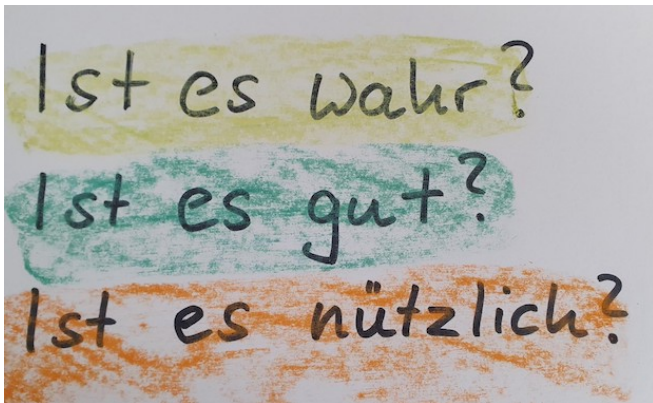 Ist es wahr?
Ist es gut?
Ist es nützlich?